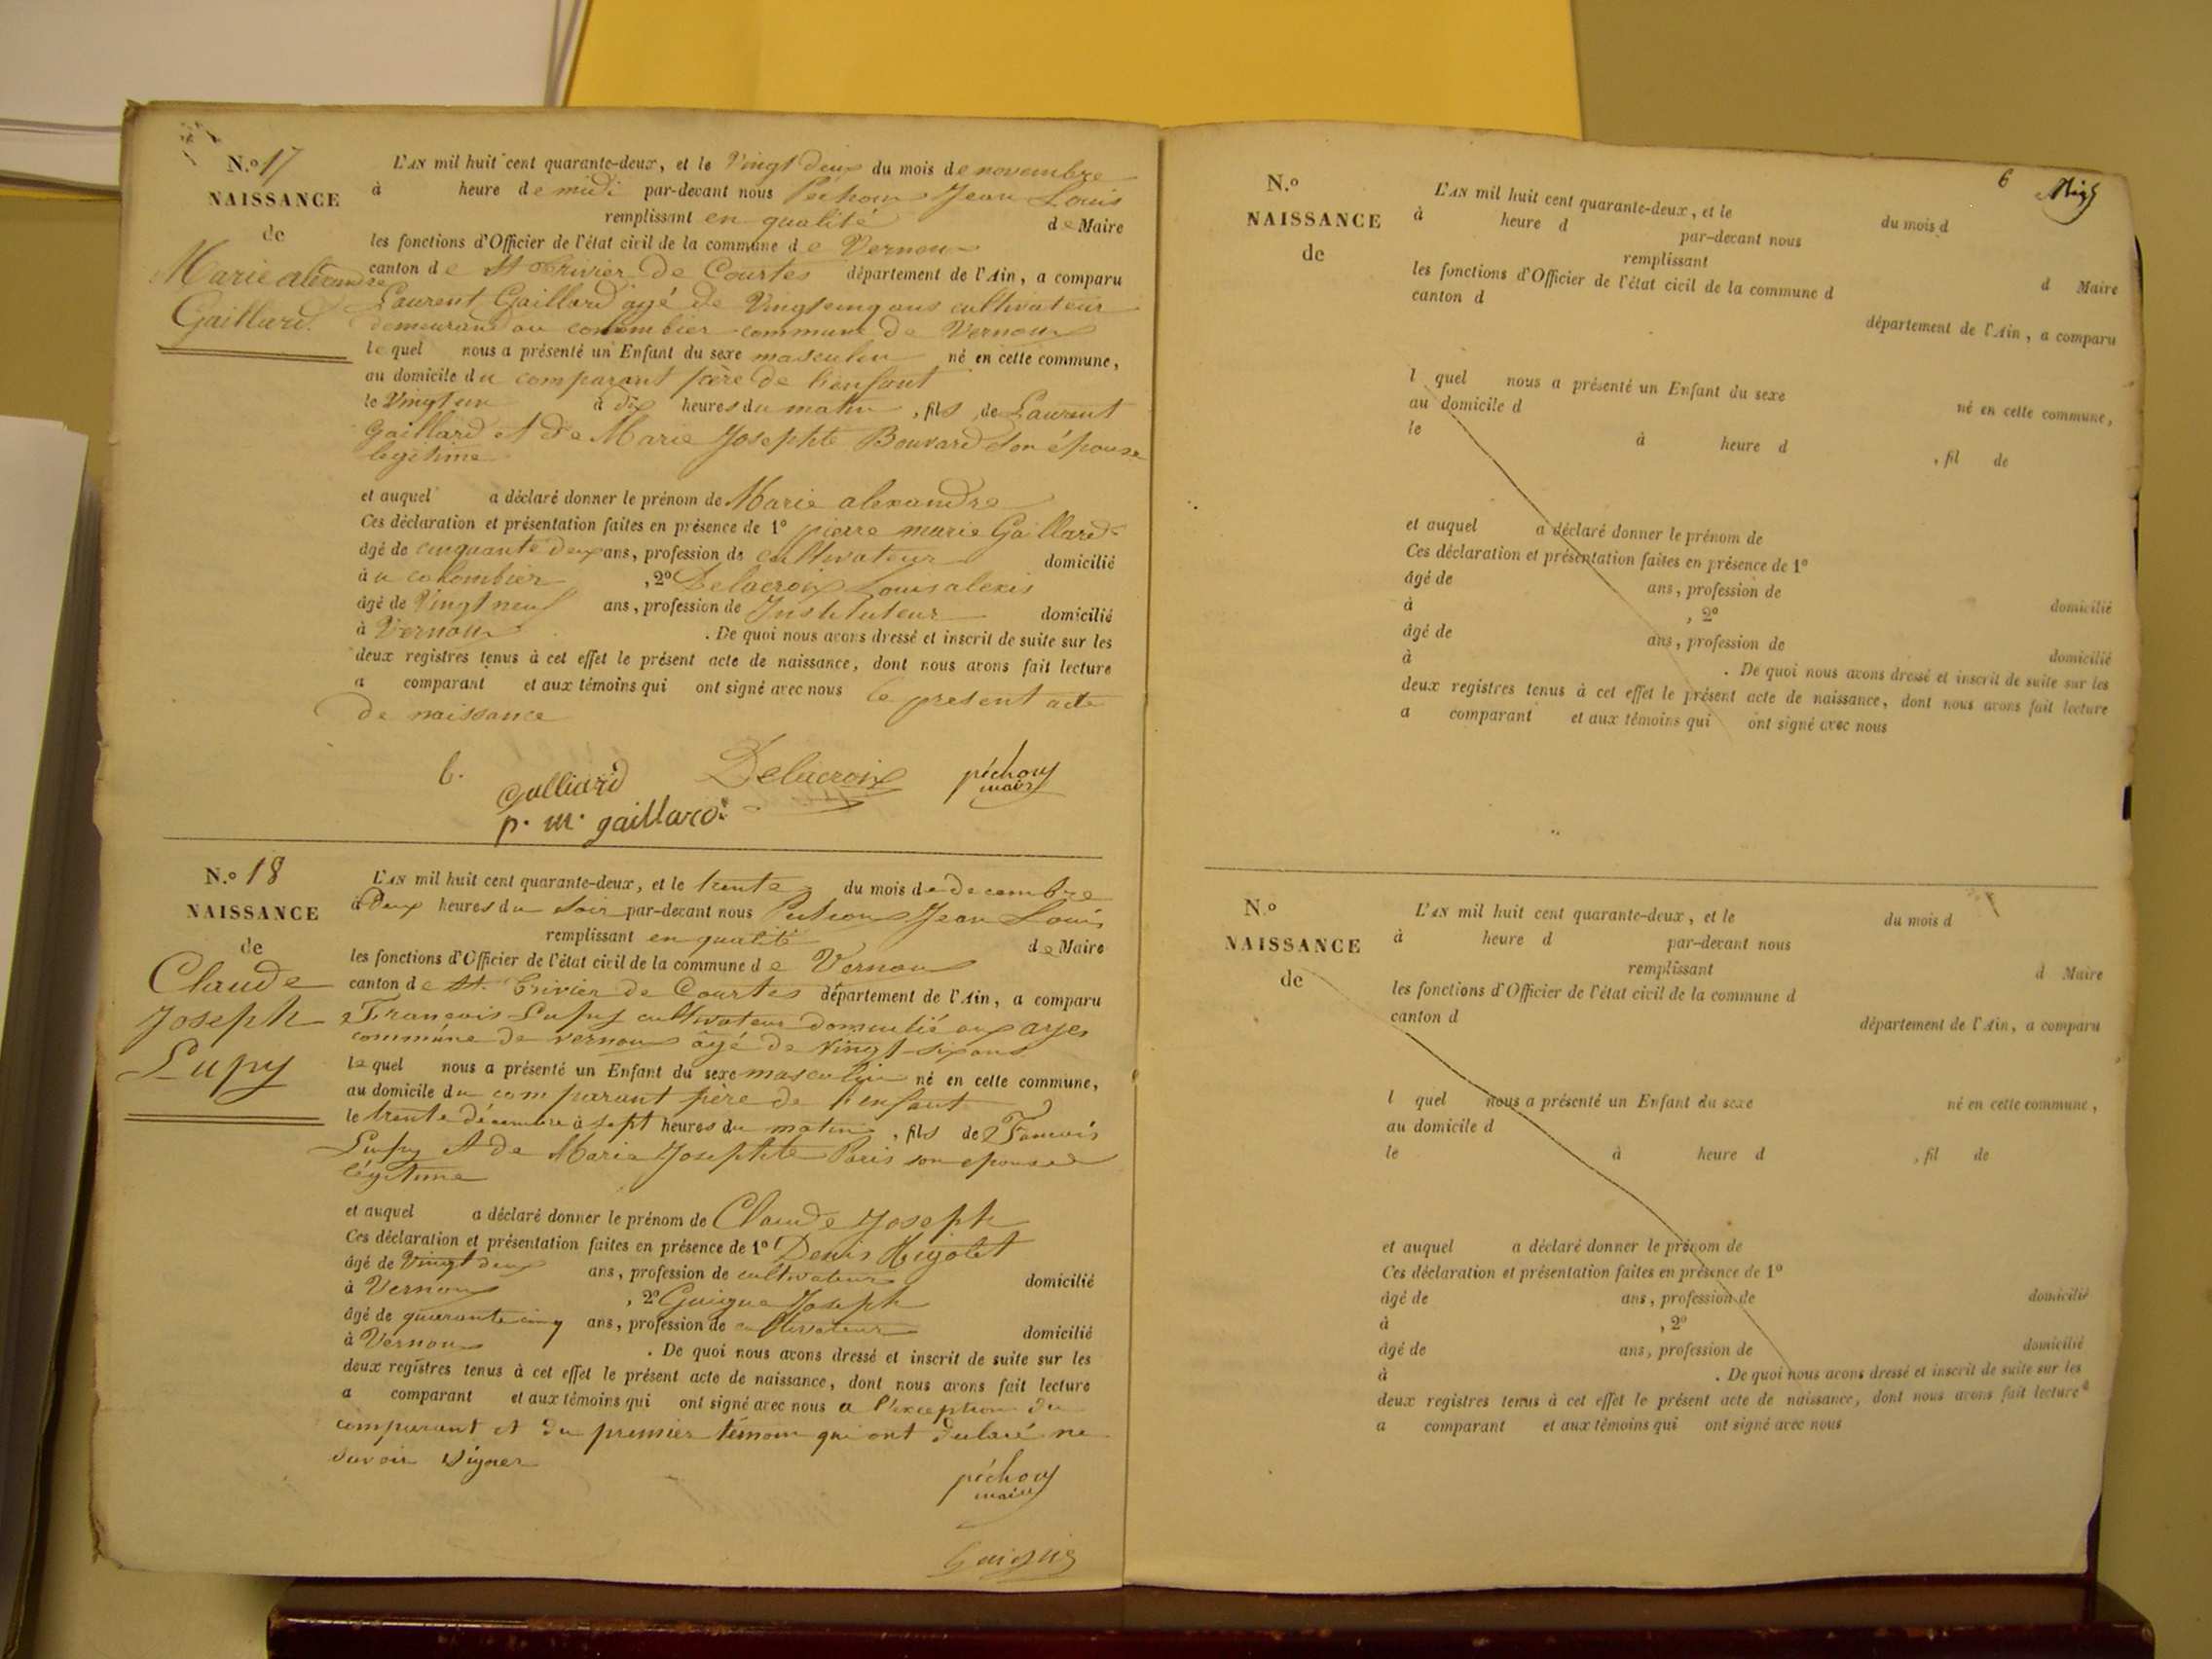 N.º 17
NAISSANCE
de
Marie alexandre
Gaillard.
L'AN mil huit cent quarante-deux, et le Vingt deux du mois de novembre
à heure de midi par-devant nous Péchoux Jean Louis
remplissant en qualité de Maire
les fonctions d'Officier de l'état civil de la commune de Vernoux
canton de St Trivier de Courtes département de l'Ain, a comparu
Laurent Gaillard agé de Vingtcinq ans cultivateur
demeurant au colombier commune de Vernoux
lequel nous a présenté un Enfant du sexe masculin né en cette commune,
au domicile du comparant père de l'enfant
le Vingt un à dix heures du matin, fils de Laurent
Gaillard et de Marie Josephte Bouvard son épouse
legitime
et auquel a déclaré donner le prénom de Marie alexandre
Ces déclaration et présentation faites en présence de 1º pierre marie Gaillard
âgé de cinquante deux ans, profession de cultivateur domicilié
à u colombier, 2º Delacroix Louis alexis
âgé de Vingt neuf ans, profession de Instituteur domicilié
à Vernoux . De quoi nous avons dressé et inscrit de suite sur les
deux registres tenus à cet effet le présent acte de naissance, dont nous avons fait lecture
a comparant et aux témoins qui ont signé avec nous le present acte
de naissance
galliard Delacroix péchoux
maire
p. m. gaillard
N.º 18
NAISSANCE
de
Claude
Joseph
Lupy
L'AN mil huit cent quarante-deux, et le trente du mois de decembre
à Deux heures du soir par-devant nous Pechoux Jean Louis
remplissant en qualité de Maire
les fonctions d'Officier de l'état civil de la commune de Vernoux
canton de St. Trivier de Courtes département de l'Ain, a comparu
Francois Lupy cultivateur domicilié aux
commune de vernoux âgé de vingt-six ans
lequel nous a présenté un Enfant du sexe masculin né en cette commune,
au domicile du comparant père de l'enfant
le trente décembre à sept heures du matin, fils de
Lupy et de Marie Josephte Paris son epouse
légitime
et auquel a déclaré donner le prénom de Claude Joseph
Ces déclaration et présentation faites en présence de 1º Denis
âgé de Vingt deux ans, profession de cultivateur domicilié
à Vernoux, 2º Guigue Joseph
âgé de quarante cinq ans, profession de cultivateur domicilié
à Vernoux . De quoi nous avons dressé et inscrit de suite sur les
deux registres tenus à cet effet le présent acte de naissance, dont nous avons fait lecture
a comparant et aux témoins qui ont signé avec nous a l'exception du
comparant et du premier témoin qui ont declaré ne
savoir signer
péchoux
maire
Guigue
6
N.º
NAISSANCE
de
L'AN mil huit cent quarante-deux, et le du mois d
à heure d par-devant nous
remplissant d Maire
les fonctions d'Officier de l'état civil de la commune d
canton d département de l'Ain, a comparu
l quel nous a présenté un Enfant du sexe né en cette commune,
au domicile d
le à heure d , fil de
et auquel a déclaré donner le prénom de
Ces déclaration et présentation faites en présence de 1º
âgé de ans, profession de domicilié
à , 2º
âgé de ans, profession de domicilié
à . De quoi nous avons dressé et inscrit de suite sur les
deux registres tenus à cet effet le présent acte de naissance, dont nous avons fait lecture
a comparant et aux témoins qui ont signé avec nous
N.º
NAISSANCE
de
L'AN mil huit cent quarante-deux, et le du mois d
à heure d par-devant nous
remplissant d Maire
les fonctions d'Officier de l'état civil de la commune d
canton d département de l'Ain, a comparu
l quel nous a présenté un Enfant du sexe né en cette commune,
au domicile d
le à heure d , fil de
et auquel a déclaré donner le prénom de
Ces déclaration et présentation faites en présence de 1º
âgé de ans, profession de domicilié
à , 2º
âgé de ans, profession de domicilié
à . De quoi nous avons dressé et inscrit de suite sur les
deux registres tenus à cet effet le présent acte de naissance, dont nous avons fait lecture
a comparant et aux témoins qui ont signé avec nous